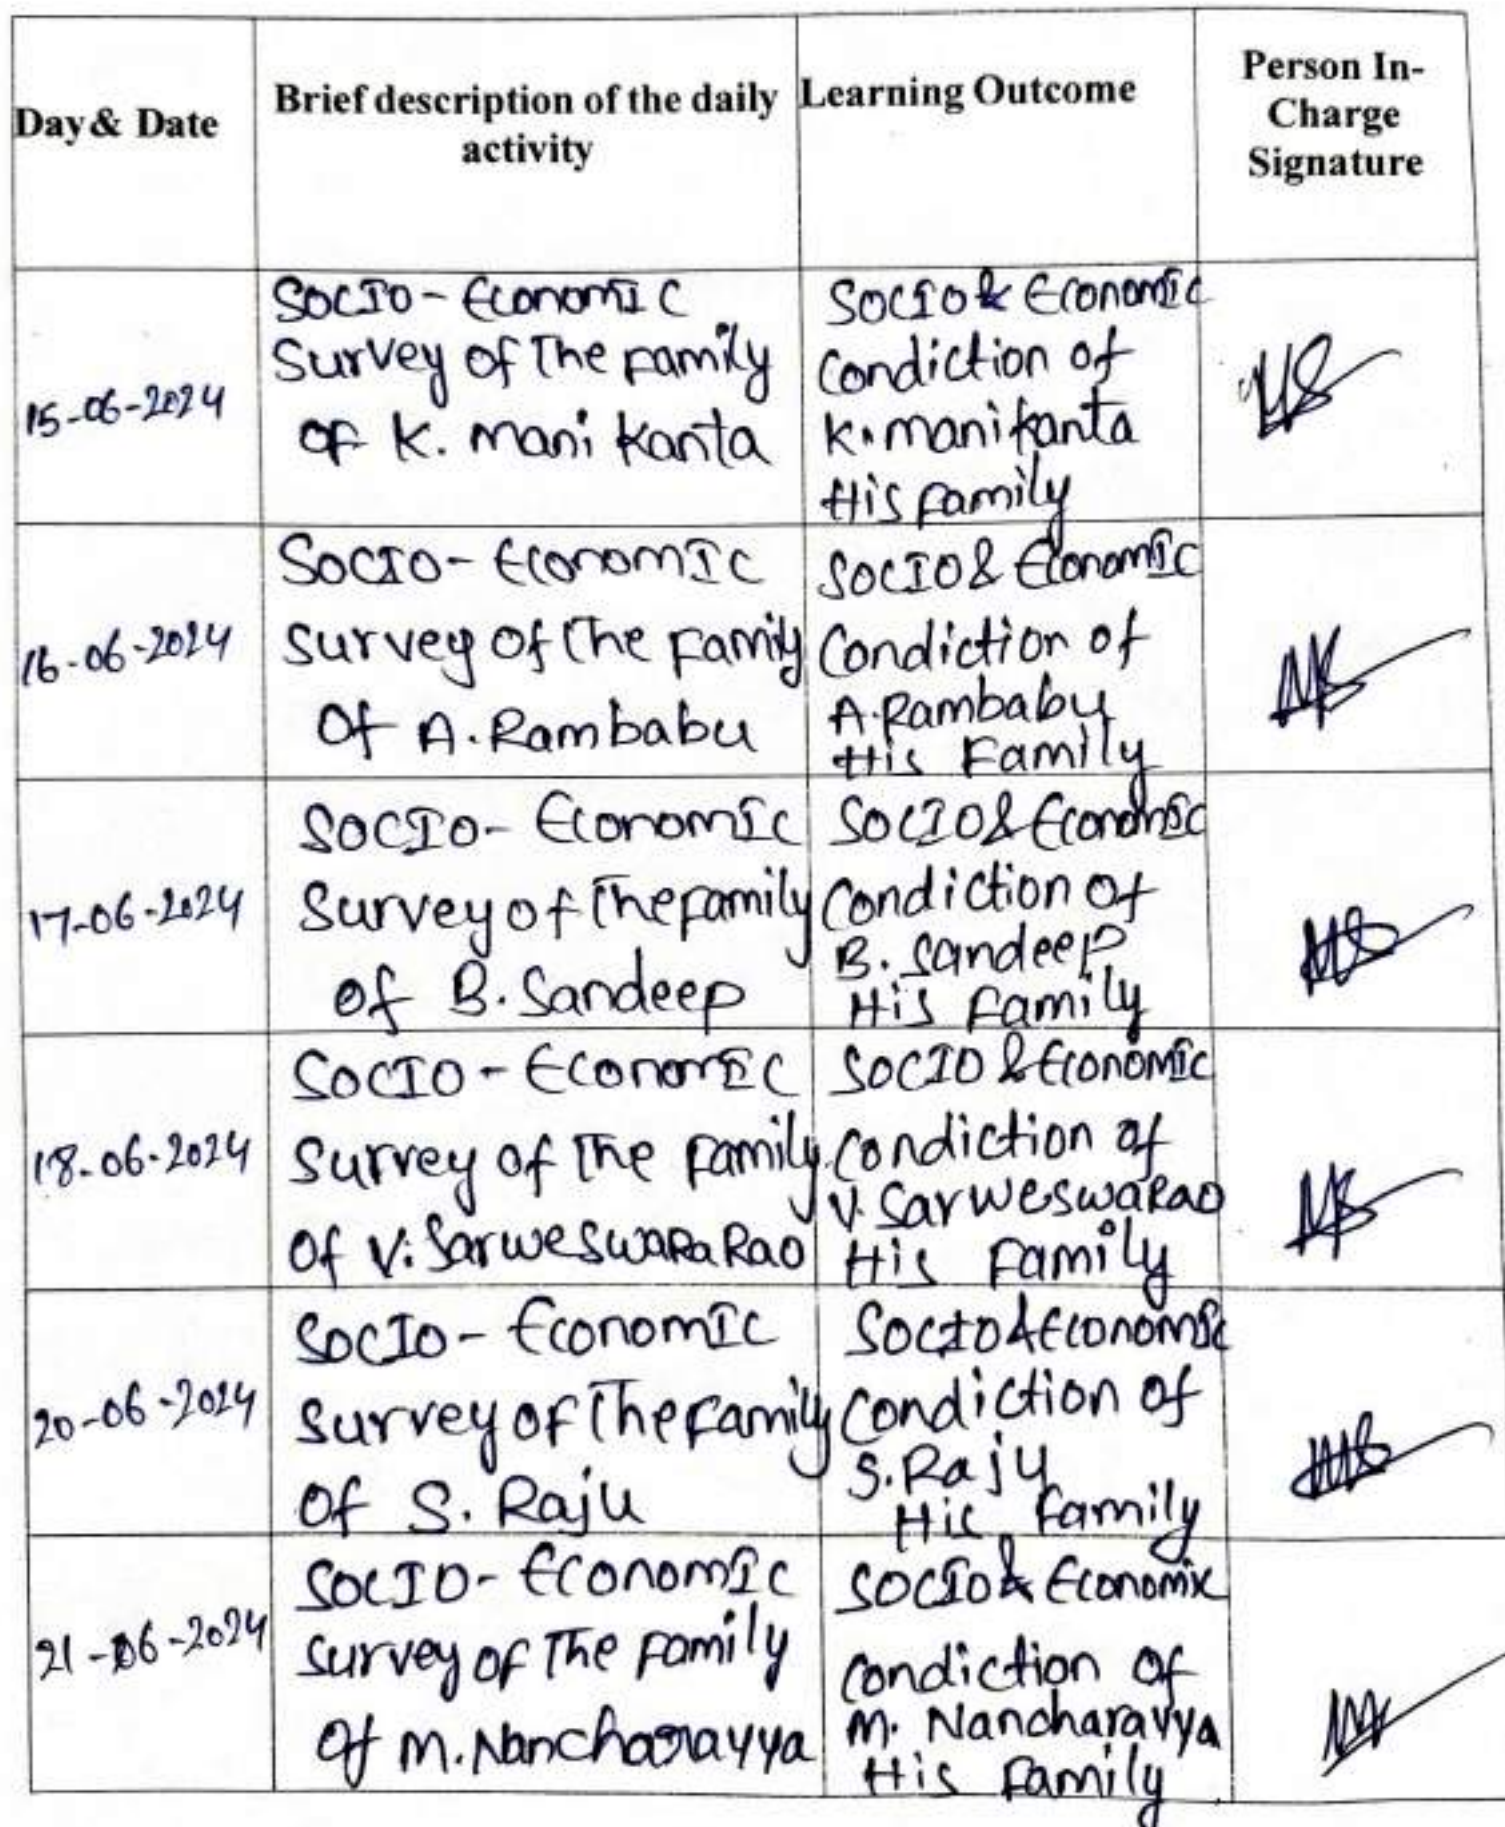 Day & Date
Brief description of the daily
activity
Learning Outcome
Person In-
Charge
Signature
15-06-2024
SOCIO - Economic
Survey of The Family
of K. Mani Kanta
SOCIO & Economic
Condiction of
K. manikanta
His Family
16-06-2024
SOCIO - Economic
Survey of The Family
Of A. Rambabu
SOCIO & Economic
Condiction of
A. Rambabu
His Family
17-06-2024
SOCIO - Economic
Survey of The Family
of B. Sandeep
SOCIO & Economic
Condiction of
B. Sandeep
His Family
18-06-2024
SOCIO - Economic
Survey of The Family
of V. SarweswaRa Rao
SOCIO & Economic
Condiction of
V. SarweswaRao
His Family
20-06-2024
SOCIO - Economic
Survey of The Family
Of S. Raju
SOCIO & Economic
Condiction of
S. Raju
His Family
21-06-2024
SOCIO - Economic
Survey of The Family
Of M. Nancharayya
SOCIO & Economic
Condiction of
M. Nancharayya
His Family